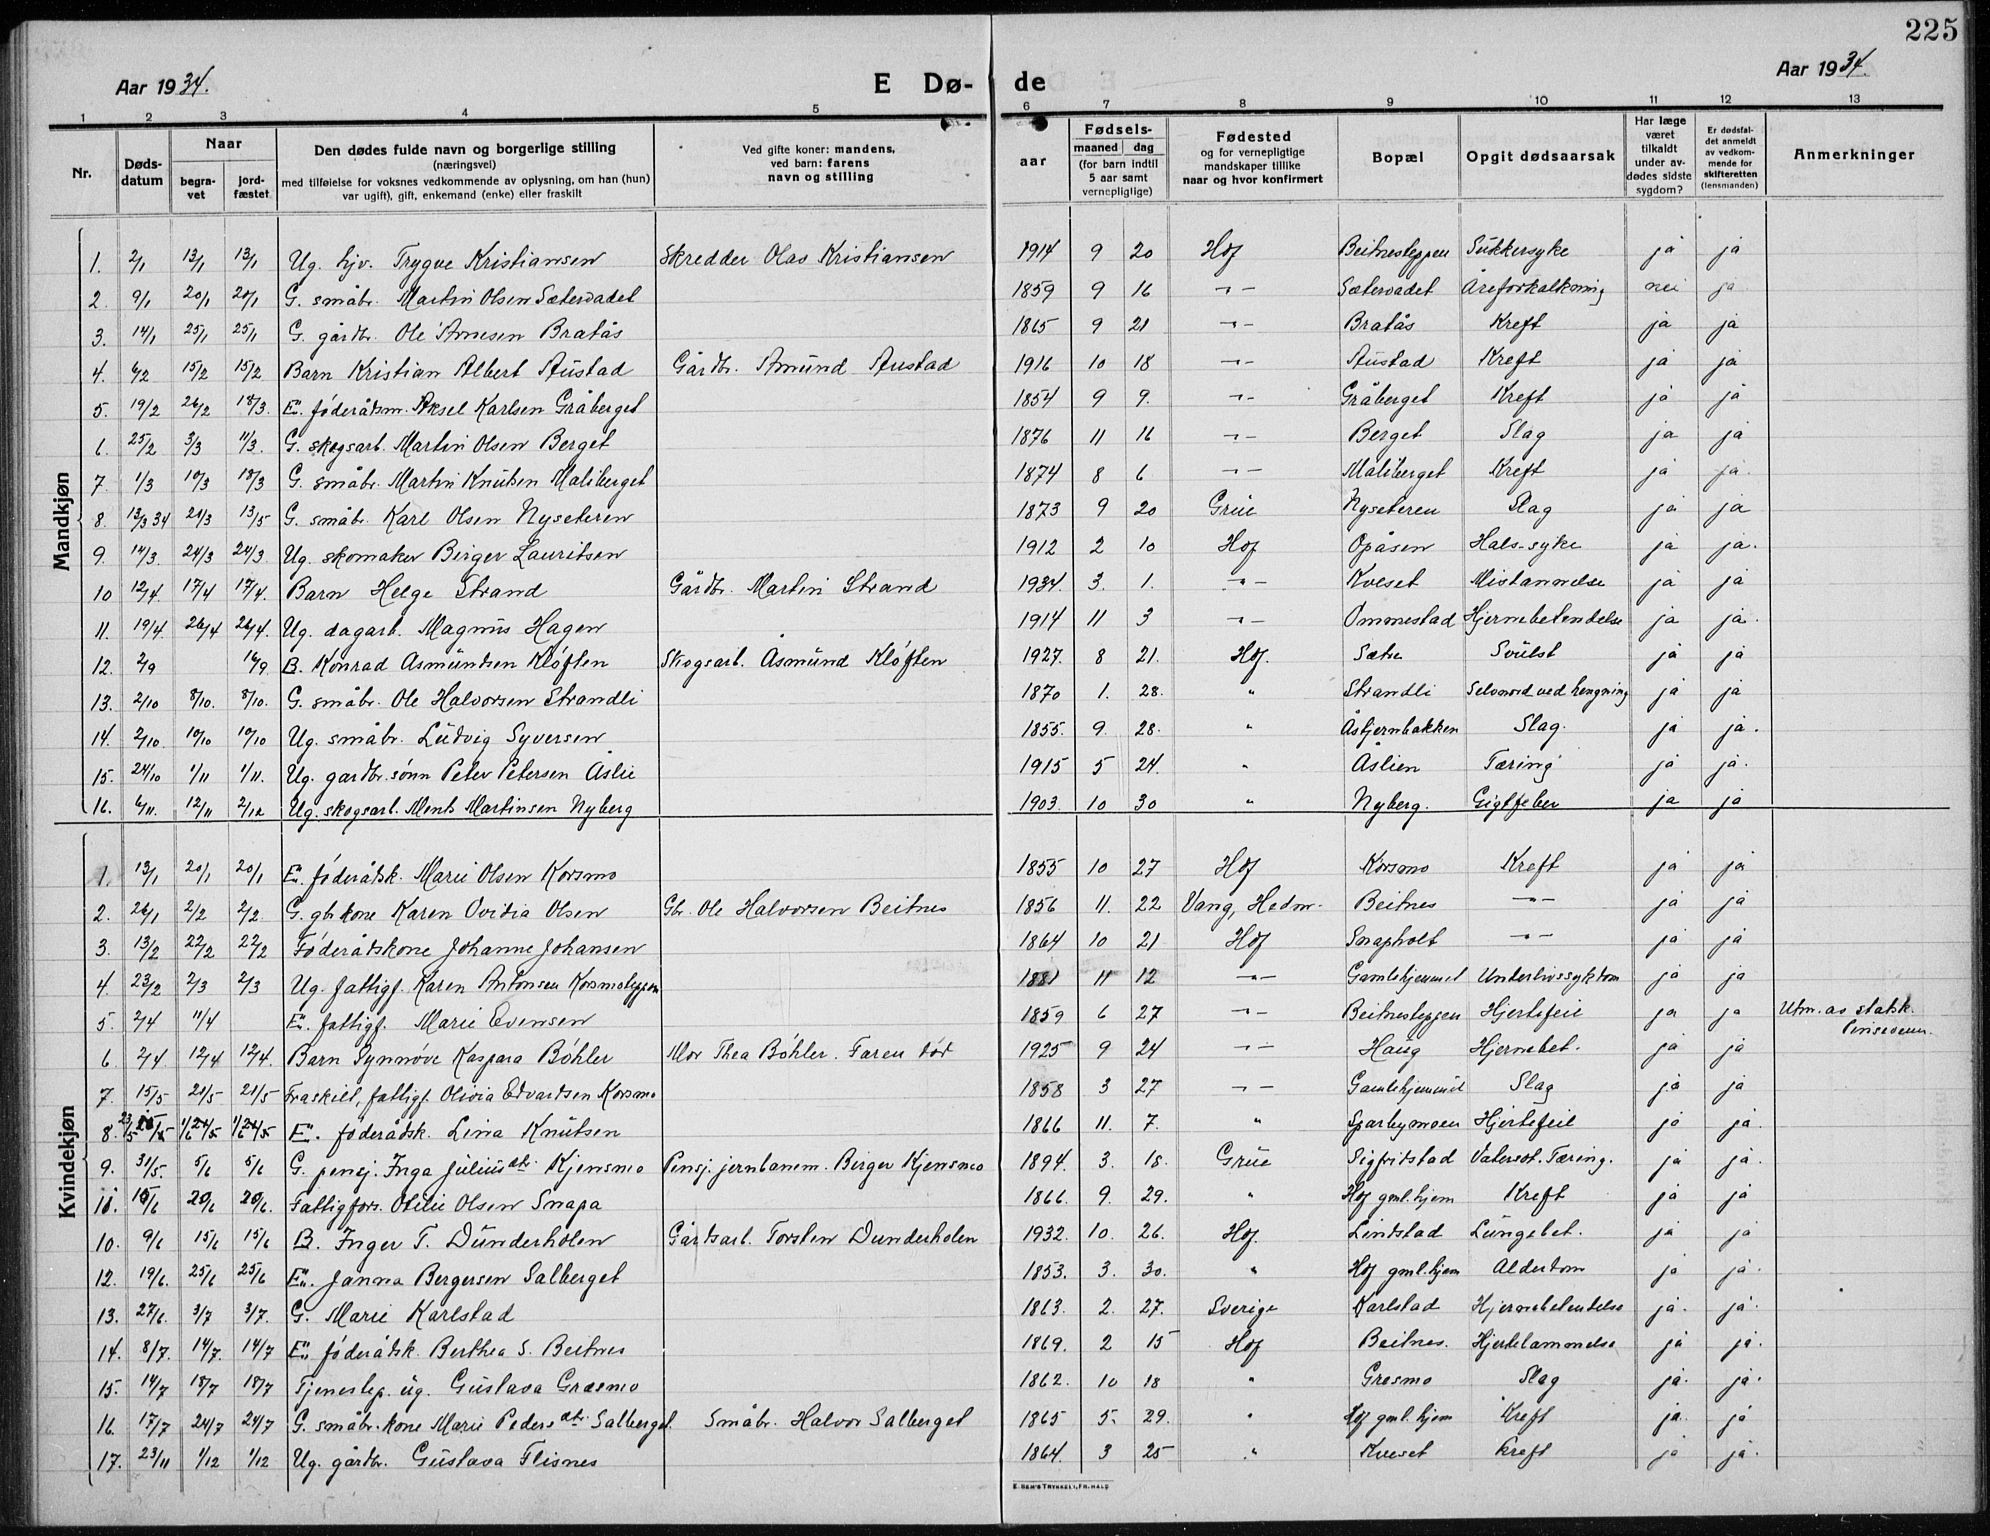 225
Aar 1934.
E Dø-
de
Aar 1934.
1 2 3 4 5 6 7 8 9 10 11 12 13
Nr.
Døds-
datum
Naar
begra-
vet
jord-
fæstet
Den dødes fulde navn og borgerlige stilling
(næringsvei)
med tilføielse for voksnes vedkommende av oplysning, om han (hun)
var ugift), gift, enkemand (enke) eller fraskilt
Ved gifte koner: mandens,
ved barn: farens
navn og stilling
aar
Fødsels-
maaned dag
(for barn indtil
5 aar samt
vernepligtige)
Fødested
og for vernepligtige
mandskaper tillike
naar og hvor konfirmert
Bopæl
Opgit dødsaarsak
Har læge
været
tilkaldt
under av-
dødes sidste
sygdom?
Er dødsfal-
det anmeldt
av vedkom-
mende for
skifteretten
(lensmanden)
Anmerkninger
Mandkjøn
1. 2/1 13/1 13/1 Ug. hjv. Trygve Kristiansen Skredder Olav Kristiansen 1914 9 20 Hof Beitnesteppen Sukkersyke ja ja
2. 9/1 20/1 20/1 G. småbr. Martin Olsen Sætervadet 1859 9 16 -"- Sætervadet Åreforkalkning nei ja
3. 14/1 25/1 25/1 G. gårdbr. Ole Arnesen Bratås 1865 9 21 -"- Bratås Kreft ja ja
4. 6/2 15/2 15/2 Barn Kristian Albert Austad Gårdbr. Amund Austad 1916 10 18 -"- Austad Kreft ja ja
5. 19/2 26/2 18/3. E. føderåtsm. Aksel Karlsen Gråberget 1854 9 9. -"- Gråberget Kreft ja ja
6. 25/2 3/3 11/3. G. skogsarb. Martin Olsen Berget 1876 11 16 -"- Berget Slag ja ja
7. 1/3 10/3 18/3 G. småbr. Martin Knutsen Maliberget 1874 8 6 -"- Maliberget Kreft ja ja.
8. 13/3 34 21/3 13/5 G. småbr. Karl Olsen Nyseteren 1873 9 20 Grue Nyseteren Slag ja ja
9. 14/3. 24/3 24/3 Ug. skomaker Birger Lauritsen 1912 2 10 Hof Opåsen Hals-syke ja ja.
10 12/4. 17/4 17/4. Barn Helge Strand Gårdbr. Martin Strand 1934. 3. 1. -"- Kveset Mistannelse ja ja
11. 19/4. 26/4 26/4. Ug. dagarb. Magnus Hagen 1914 11 3 -"- Ommestad Hjernebetendelse ja ja.
12. 2/9 16/9. B. Konrad Asmundsen Kløften Skogsarb. Asmund Kløften 1927. 8 21. Hof. Sætre Svulst ja ja
13. 2/10 8/10. 8/10. G. småbr. Ole Halvorsen Strandli 1870 1. 28. " Strandli Selvmord ved hengning ja ja
14. 2/10. 10/10 10/10 Ug. småbr. Ludvig Syversen 1855. 9. 28. " Åsbjørnbakken Slag. ja ja.
15. 24/10 1/11 1/11. Ug. gardbr.sønn Peter Petersen Aslie 1915 5 24. " Åslien Tæring ja ja.
16. 6/11. 12/11 2/12 Ug. skogsarb. Ments Martinsen Nyberg 1903. 10 30 " Nyberg. Gigtfeber ja ja
Kvindekjøn
1. 13/1 20/1 20/1 E. føderåtsk. Marie Olsen Korsmo 1855 10 27 Hof Korsmo Kreft ja ja
2. 26/1 2/2 2/2 G. gbr kone Karen Ovidia Olsen Gbr. Ole Halvorsen Beitnes 1856 11. 22 Vang, Hedm. Beitnes -"- ja ja
3. 13/2 22/2 22/2 Føderåtskone Johanne Johansen 1864 10 21 Hof Snapholt -"- ja ja
4. 23/2 2/3 2/3 Ug. fattigf. Karen Antonsen Korsmoteppen 1881 11 12 -"- Gamlehjemmet Underlivssykdom ja ja
5. 2/4 11/4 E. fattigf. Marie Evensen 1859 6 27 -"- Beitnesteppen Hjertefeil ja ja Utm. av statsk.
6. 2/4. 12/4 12/4. Barn Synnøve Kaspara Bøhler Mor Thea Bøhler. Faren død 1925 9 24 -"- Haug Hjernebet. ja ja
7. 15/5 21/5 21/5 Fraskilt, fattigf. Olivia Edvardsen Korsmo 1858 3 27 -"- Gamlehjemmet Slag ja ja
8. 23/5 1/6 1/6 E. føderådsk. Lina Knutsen 1866 11. 7. " Sparbymoen Hjertefeil ja ja.
9. 31/5. 5/6 5/6 G. pensj. Inga Juliusdtr. Kjensmo Pensj. jernbanem. Birger Kjensmo 1894. 3. 18. Grue Sigfridstad Vatersot. Tæring. ja ja.
11. 10/6 20/6 20/6. Fattigfors. Otilie Olsen Snapa 1866. 9. 29. " Hof gml. hjem Kreft ja ja
10. 9/6 15/6 15/6 B. Inger T. Dunderholen Gårdsarb. Torsten Dunderholen 1932. 10. 26. Hof. Lindstad Lungebet. ja ja
12. 19/6. 25/6 25/6 E. Janna Bergersen Salberget 1853. 3. 30. " Hof gml. hjem Alderdom ja ja.
13. 27/6. 3/7 3/7. G. Marie Karlstad 1863. 2. 27. Sverige Karlstad Hjernebetendelse ja. ja.
14. 8/7. 14/7. 14/7 E. føderåtsk. Berthea S. Beitnes 1869. 2 15 Hof Beitnes. Hjertelammelse ja ja.
15. 14/7 18/7 18/7 Tjenestep. ug. Gustava Græsmo 1862. 10 18 " Gresmo Slag ja. ja.
16. 17/7 24/7 24/7 G. småbr.kone Marie Pedersdtr. Salberget Småbr. Halvor Salberget 1865 5. 29. " Hof gml. hjem Kreft ja. ja
17. 23/11 1/12 1/12 Ug. gårdbr. Gustava Flisnes 1864. 3 25 " Kveset Kreft ja ja.